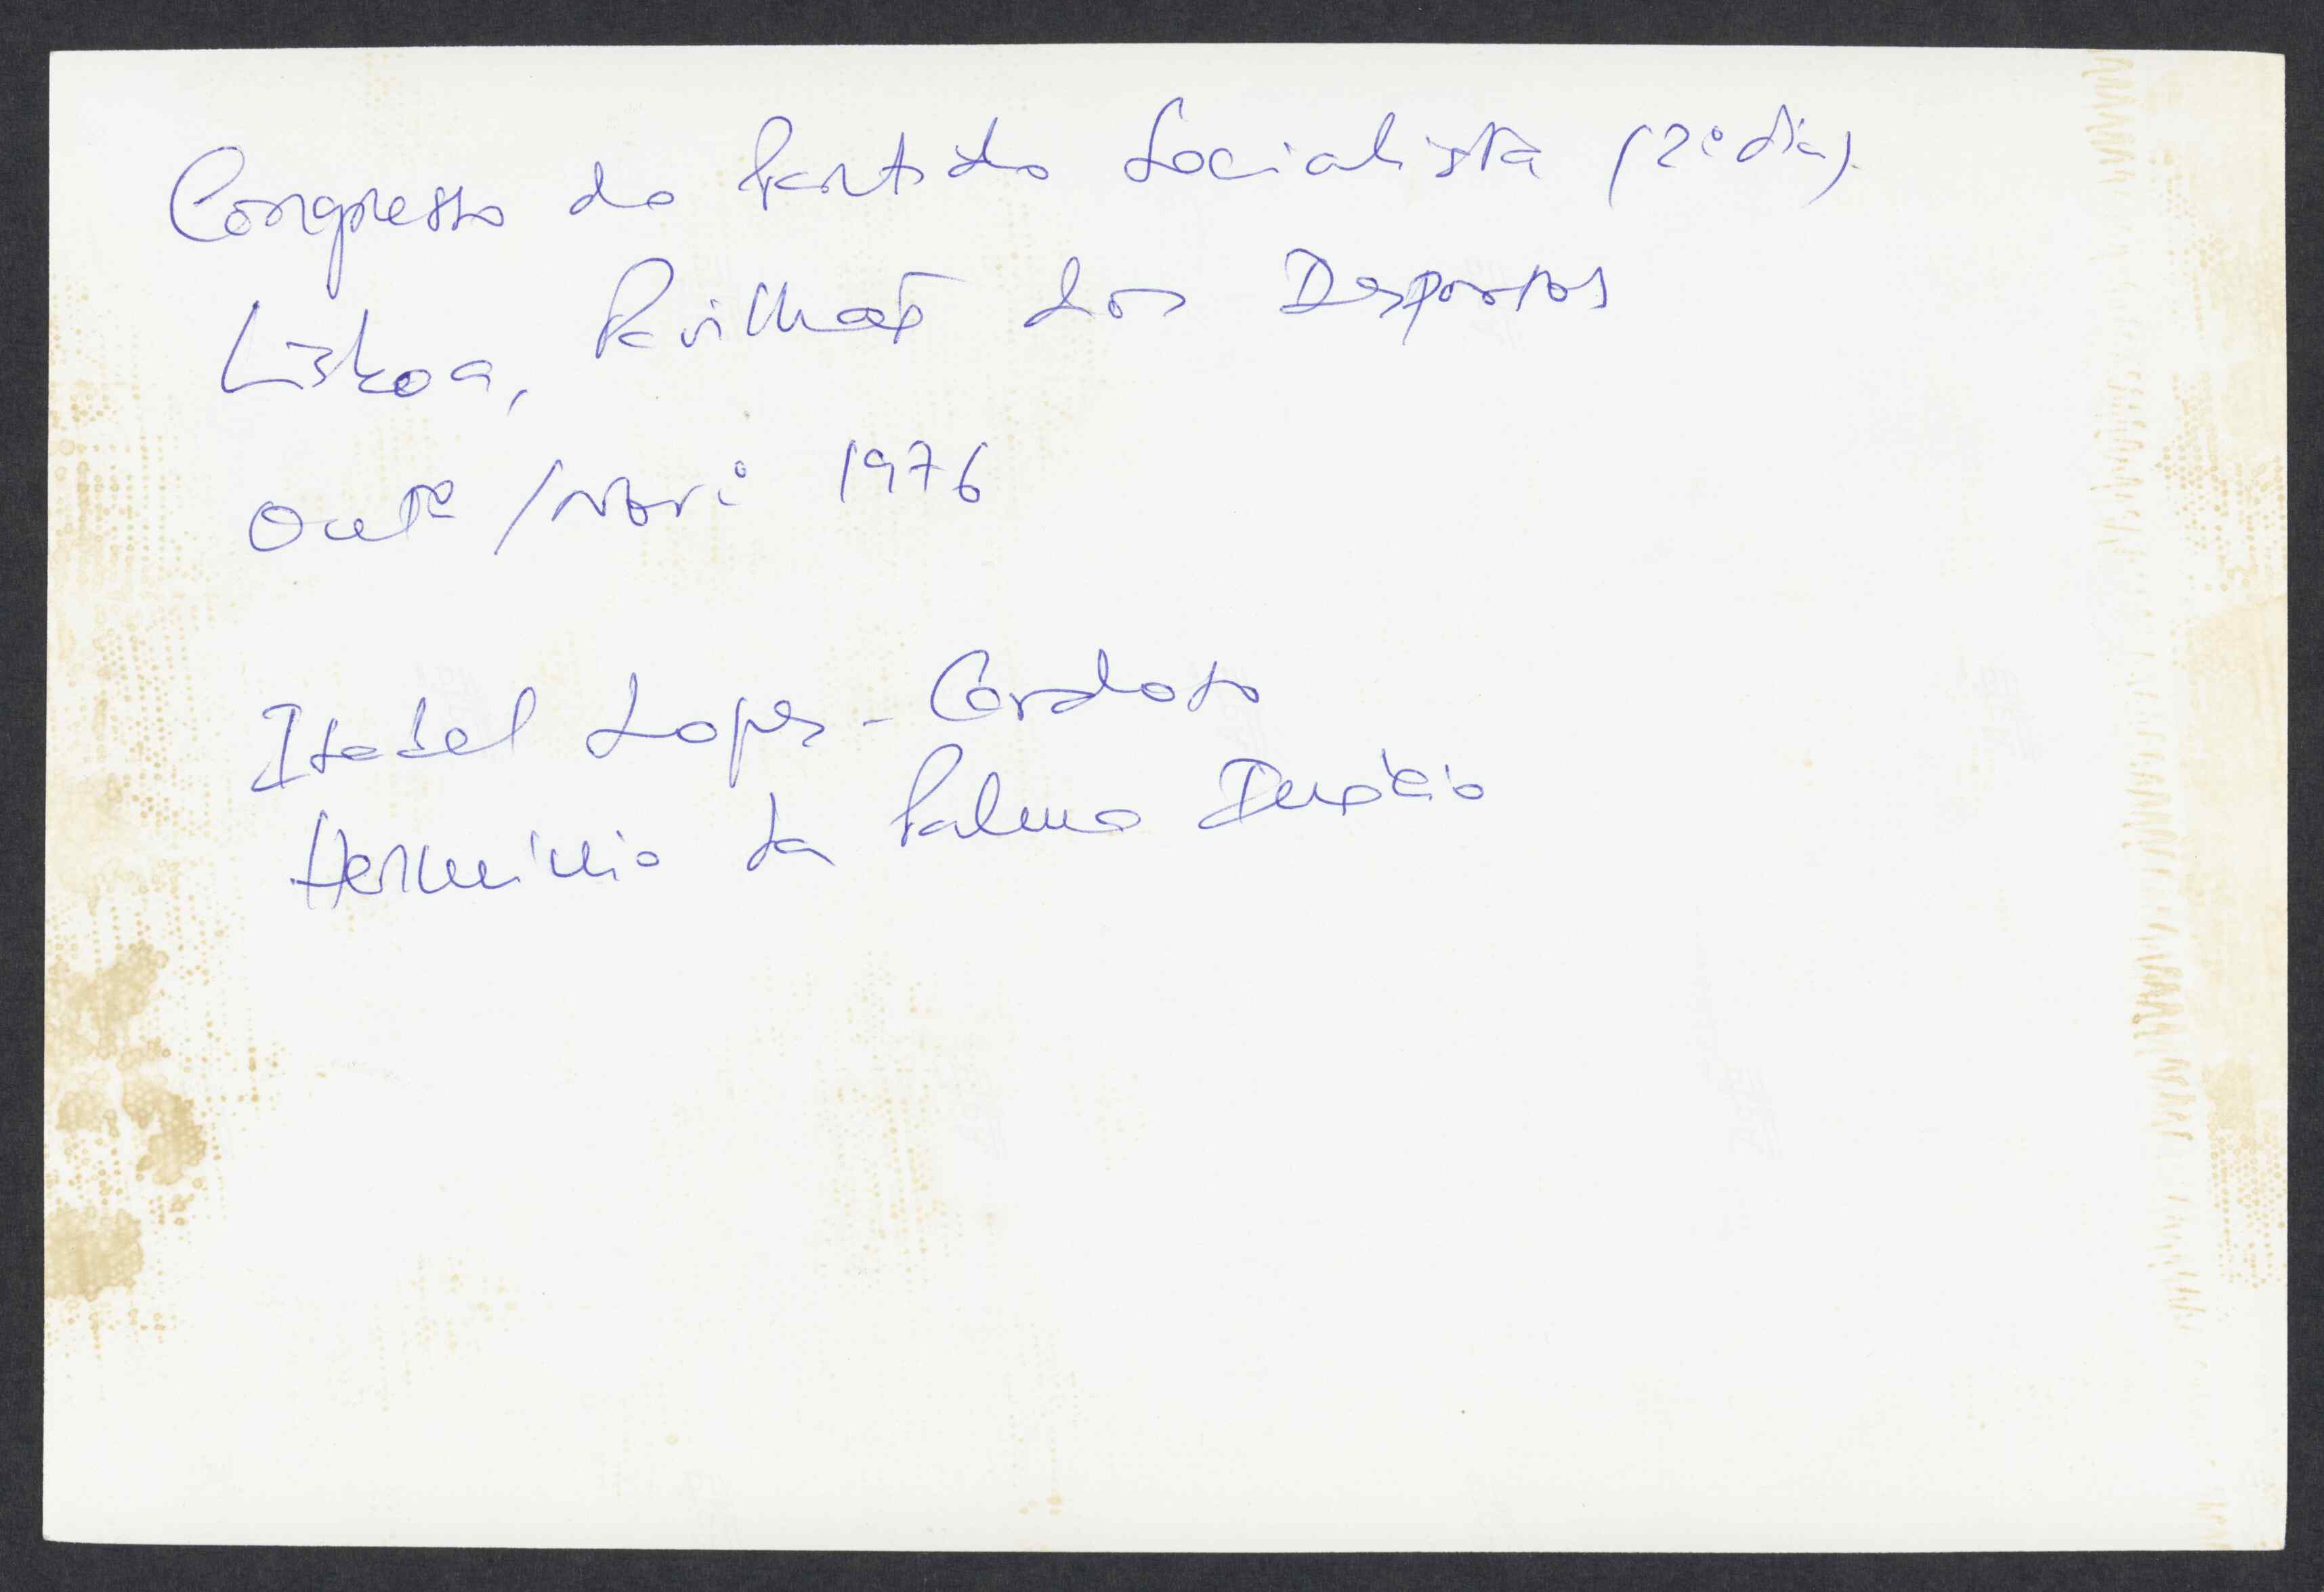 Congresso do Partido Socialista (2º dia).
Lisboa, Pavilhão dos Desportos
Outº / Novº 1976
Isabel Lopes-Cardoso
Hermínio da Palma Inácio